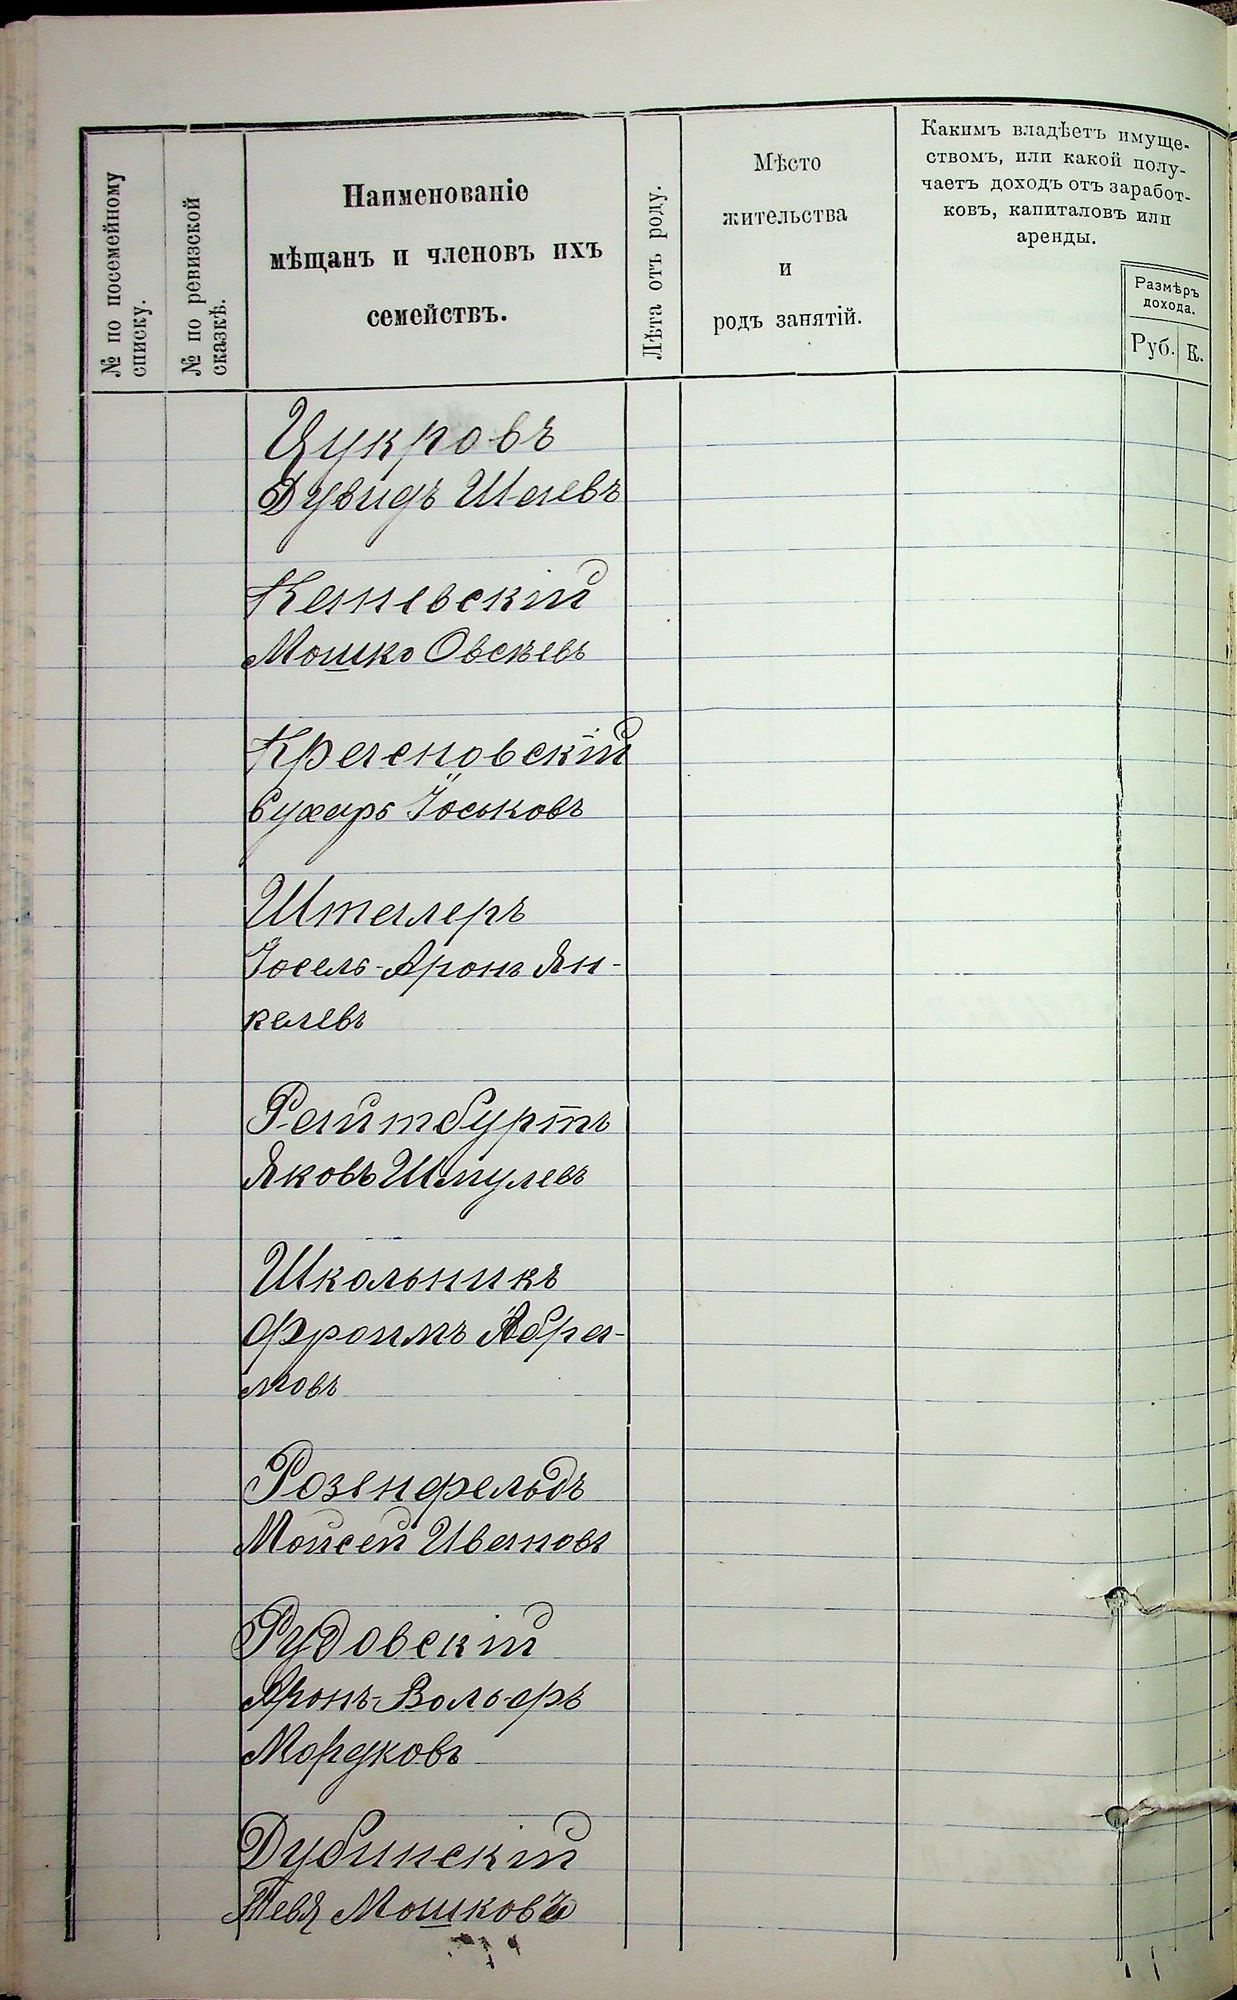 № по посемейному
списку.
№ по ревизской
сказкѣ.
Наименованіе
мѣщанъ и членовъ ихъ
семействъ.
Лѣта отъ роду.
Мѣсто
жительства
и
родъ занятій.
Какимъ владѣетъ имуще-
ствомъ, или какой полу-
чаетъ доходъ отъ заработ-
ковъ, капиталовъ или
аренды.
Размѣръ
дохода.
Руб. К.
Цукровъ
Дувидъ Шаевъ
Каневскій
Мошко Овсѣевъ
Красновскій
Сухаръ Іоськовъ
Шталеръ
Іосель-Аронъ Ян-
келевъ
Райтбуртъ
Яковъ Шмулевъ
Школьникъ
Фроимъ Абра-
мовъ
Розенфельдъ
Мойсей Ивановъ
Рудовскій
Аронъ-Вольфъ
Мордковъ
Дубинскій
Тевя Мошковъ